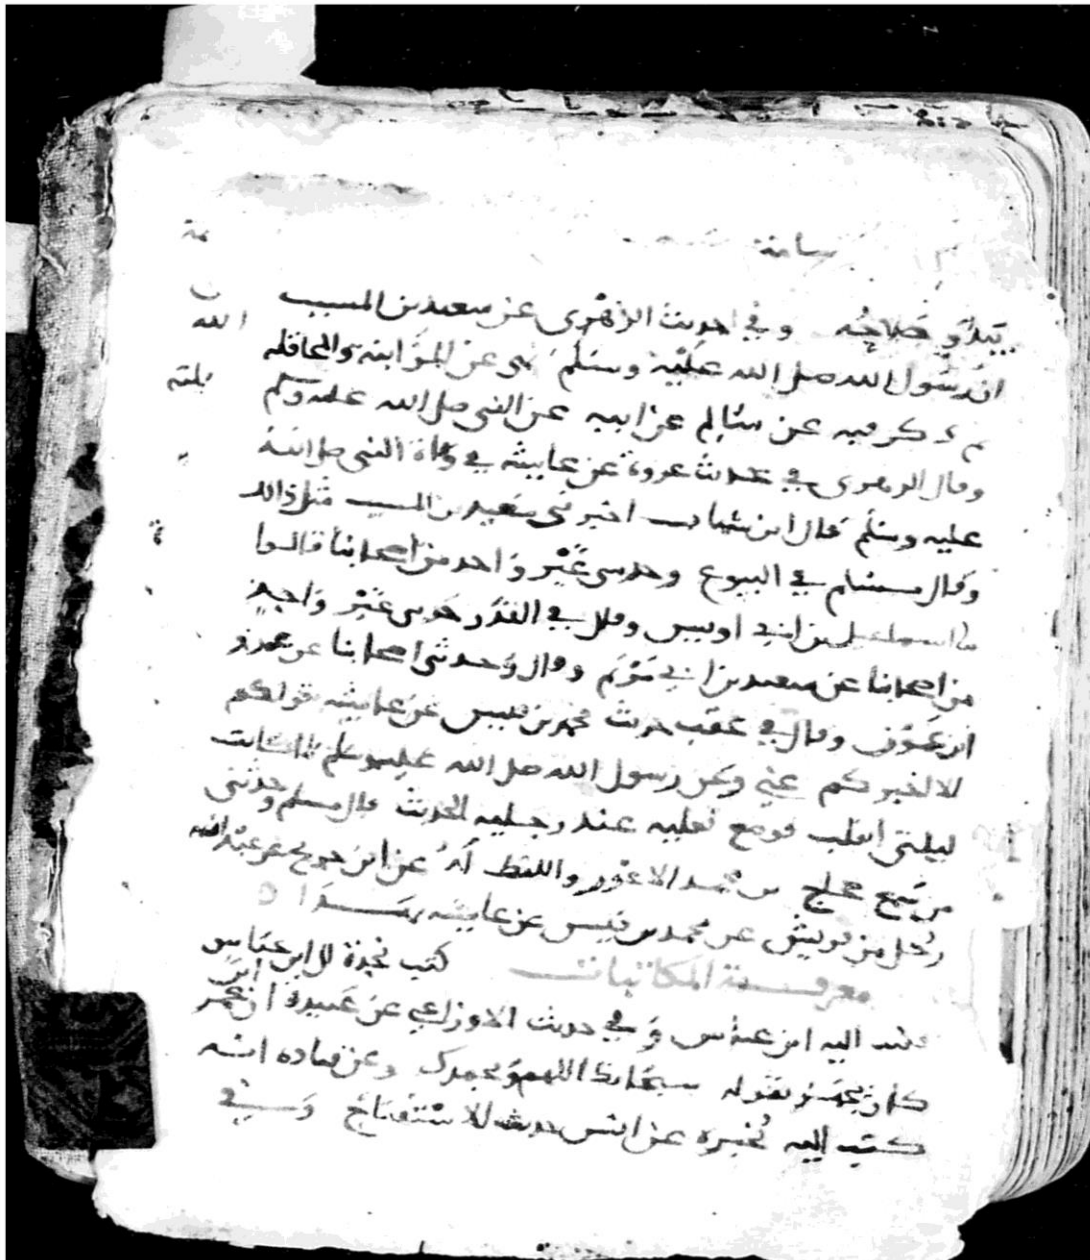 يبدو صلاحه وفي حديث الزهري عن سعيد بن المسيب
ان رسول الله صلى الله عليه وسلم نهى عن المزابنه والمحاقله
كر فيه عن سالم عن ابيه عن النبي صلى الله عليه وسلم
وقال الزهري في حديث عروة عن عايشه في وفاة النبي صلى الله
عليه وسلم قال ابن شهاب اخبرني سعيد بن المسيب مثل ذالك
وقال مسلم في البيوع وحدثني غير واحد من اصحابنا قالوا
اسماعيل بن ابي اويس وقال في القدر حدثني غير واحد
من اصحابنا عن سعيد بن ابي مريم وقال وحدثني اصحابنا عن عمرو
ابن عون وقال في عقب حديث محمد بن قيس عن عايشه
الا اخبركم عني وعن رسول الله صلى الله عليه وسلم كانت
ليلتي انقلب فوضع نعليه عند رجليه الحديث قال مسلم وحدثني
من سمع حجاج بن محمد الاعور واللفظ له عن ابن جريج عن عبد الله
رجل من قريش عن محمد بن قيس عن عايشه بهذا
معرفة المكاتبات كتب نجدة الى ابن عباس
اليه ابن عباس وفي حديث الاوزاعي عن عبيدة ان عمر
كان يجهر بقوله سبحانك اللهم وبحمدك وعن قتاده انه
كتب اليه يخبره عن انس حديث الاستفتاح وفي